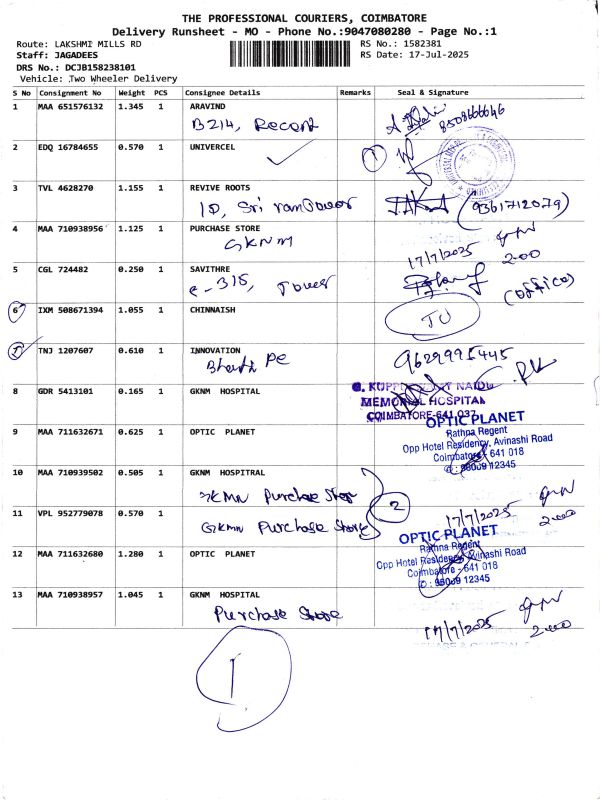 THE PROFESSIONAL COURIERS, COIMBATORE
Delivery Runsheet - MO - Phone No.:9047080280 - Page No.:1
Route: LAKSHMI MILLS RD
RS No.: 1582381
Staff: JAGADEES
RS Date: 17-Jul-2025
DRS No.: DCJB158238101
Vehicle: Two Wheeler Delivery
S No Consignment No Weight PCS Consignee Details Remarks Seal & Signature
1 MAA 651576132 1.345 1 ARAVIND
B214, Recent
8508666646
2 EDQ 16784655 0.570 1 UNIVERCEL
1
3 TVL 4628270 1.155 1 REVIVE ROOTS
1D, Sri ram Tower
(9361712079)
4 MAA 710938956 1.125 1 PURCHASE STORE
GKNM
17/7/2025
2:00
5 CGL 724482 0.250 1 SAVITHRE
e-315, Tower
(office)
6 IXM 508671394 1.055 1 CHINNAISH
7 TNJ 1207607 0.610 1 INNOVATION
Bharth PC
9629995445
8 GDR 5413101 0.165 1 GKNM HOSPITAL
MEMORIAL HOSPITAL
COIMBATORE-641 037
9 MAA 711632671 0.625 1 OPTIC PLANET
OPTIC PLANET
Rathna Regent
Opp Hotel Residency, Avinashi Road
Coimbatore - 641 018
: 98009 12345
10 MAA 710939502 0.505 1 GKNM HOSPITRAL
GKMN Purchase Store
2
11 VPL 952779078 0.570 1
GKMN Purchase Store
17/7/2025
2:00
12 MAA 711632680 1.280 1 OPTIC PLANET
OPTIC PLANET
Rathna Regent
Opp Hotel Residency, Avinashi Road
Coimbatore - 641 018
: 98009 12345
13 MAA 710938957 1.045 1 GKNM HOSPITAL
Purchase Store
17/7/2025
2:00